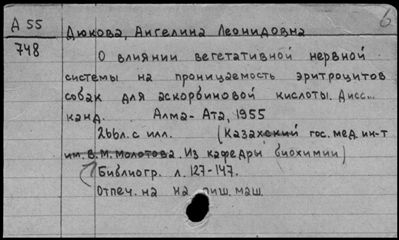 А 55
748
Дюкова, Ангелина Леонидовна
6
О влиянии вегетативной нервной
системы на проницаемость эритроцитов
собак для аскорбиновой кислоты. Дисс...
канд. Алма-Ата, 1955
266л. с илл. (Казахский гос. мед. ин-т
им. В.М. Молотова. Из кафедры биохимии)
Библиогр. л. 127-147.
Отпеч. на на пиш. маш.